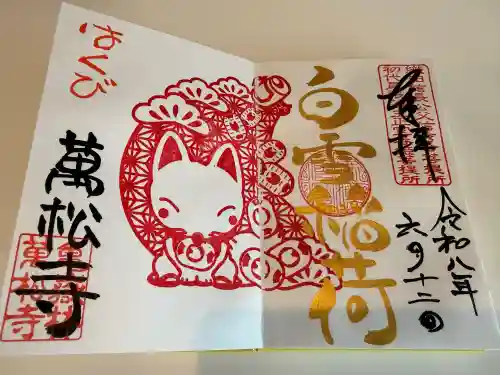 奉拝
白雪稲荷
令和八年
六月十二日
はくび
萬松寺
亀岳林
萬松寺